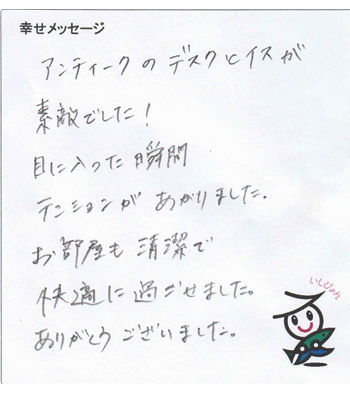 幸せメッセージ
アンティークのデスクとイスが
素敵でした!
目に入った瞬間
テンションがあがりました。
お部屋も清潔で
快適に過ごせました。
ありがとうございました。
いしぴょん